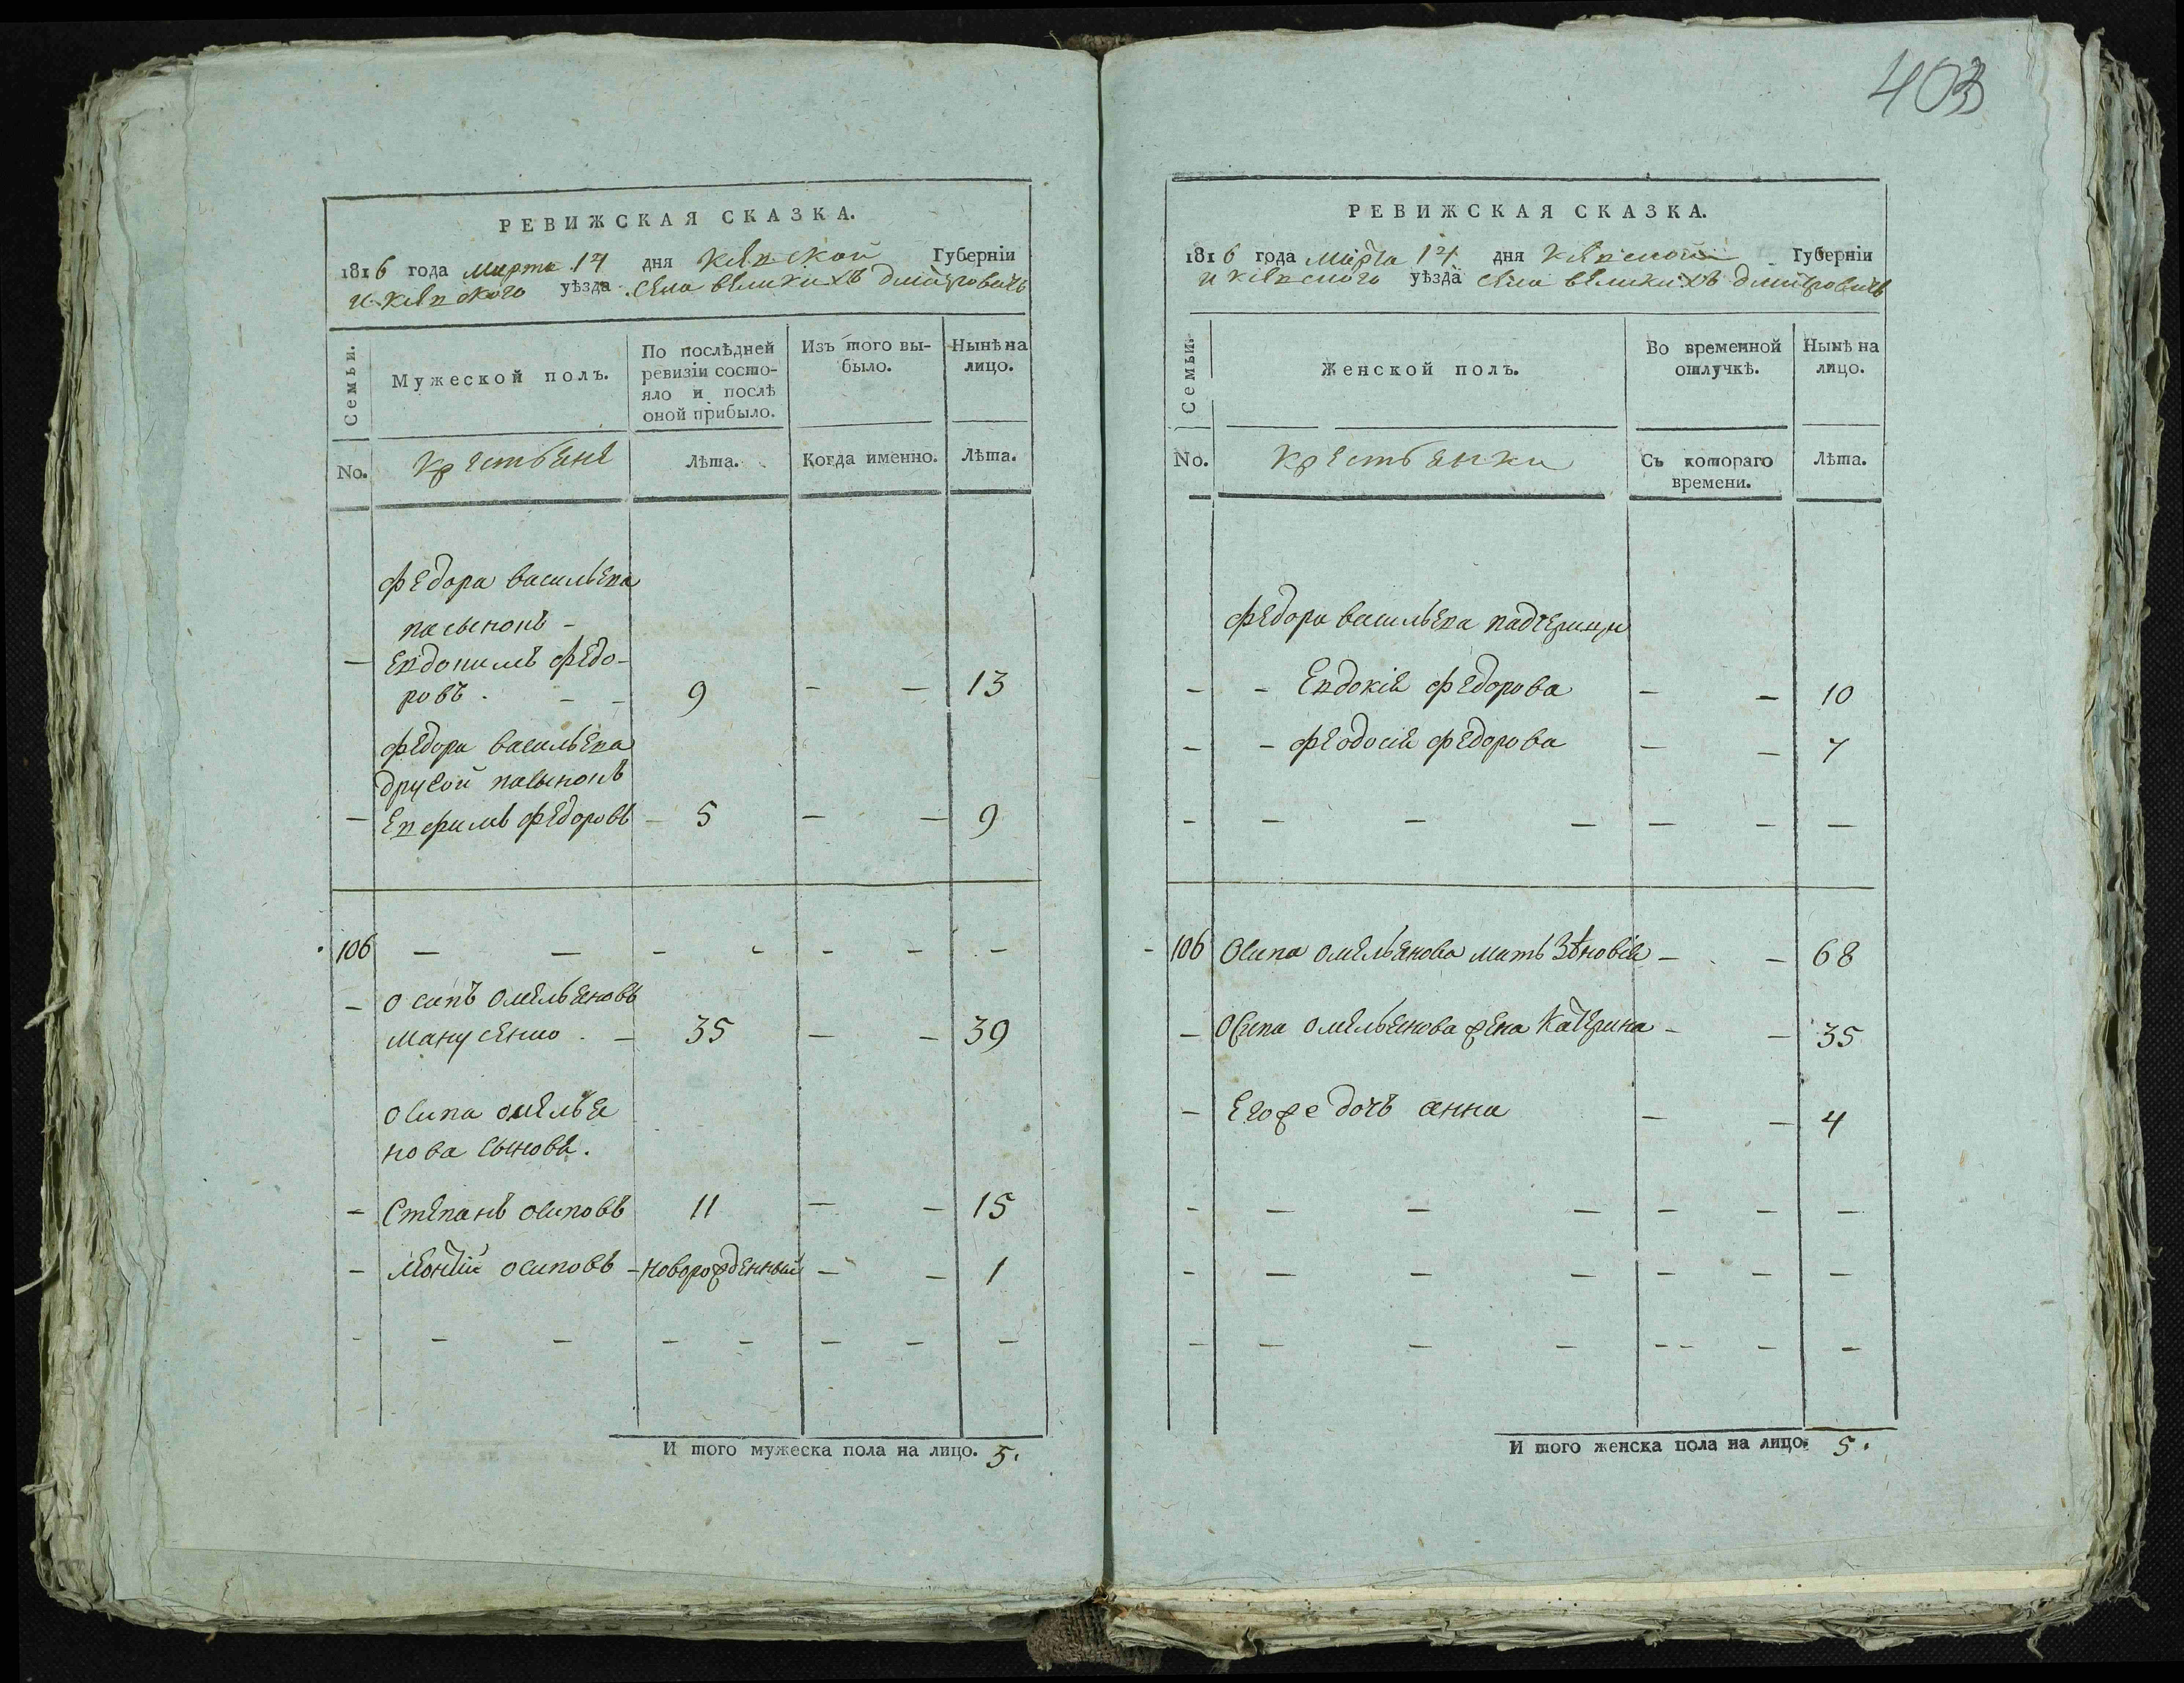 403
РЕВИЖСКАЯ СКАЗКА.
1816 года Марта 14 дня Киевской Губерніи
и Киевского уѣзда села великихъ дмитровичь
Семьи.
Мужеской полъ.
По послѣдней ревизіи состо-
яло и послѣ оной прибыло.
Изъ того вы-
было.
Нынѣ на лицо.
No.
крестьяне
Лѣта.
Когда именно.
Лѣта.
Федора васильева
пасынокъ -
— Евдокимъ Федо-
ровъ. — — 9 — — 13
Федора васильева
другой пасынокъ
— Евфимъ Федоровъ — 5 — — 9
106 — — — — — — —
— осипъ омельяновъ
манусенко. — 35 — — 39
осипа омелья
нова сыновя.
— Степанъ осиповъ 11 — — 15
— Леонтий осиповъ — новорожденный — — 1
— — — — — — — —
И того мужеска пола на лицо. 5.
РЕВИЖСКАЯ СКАЗКА.
1816 года марта 14 дня Киевской Губерніи
и Киевского уѣзда села великихъ дмитровичь
Семьи.
Женской полъ.
Во временной отлучкѣ.
Нынѣ на лицо.
No.
крестьянки
Съ котораго времени.
Лѣта.
Федора васильева падчерицы
— — Евдокія Федорова — — 10
— — Феодосия Федорова — — 7
— — — — — — —
106 Осипа омельянова мать Зѣновія — — 68
— Осипа омельянова жена Катерина — — 35
— Его же дочь анна — — 4
— — — — — — —
— — — — — — —
— — — — — — — —
И того женска пола на лицо. 5.